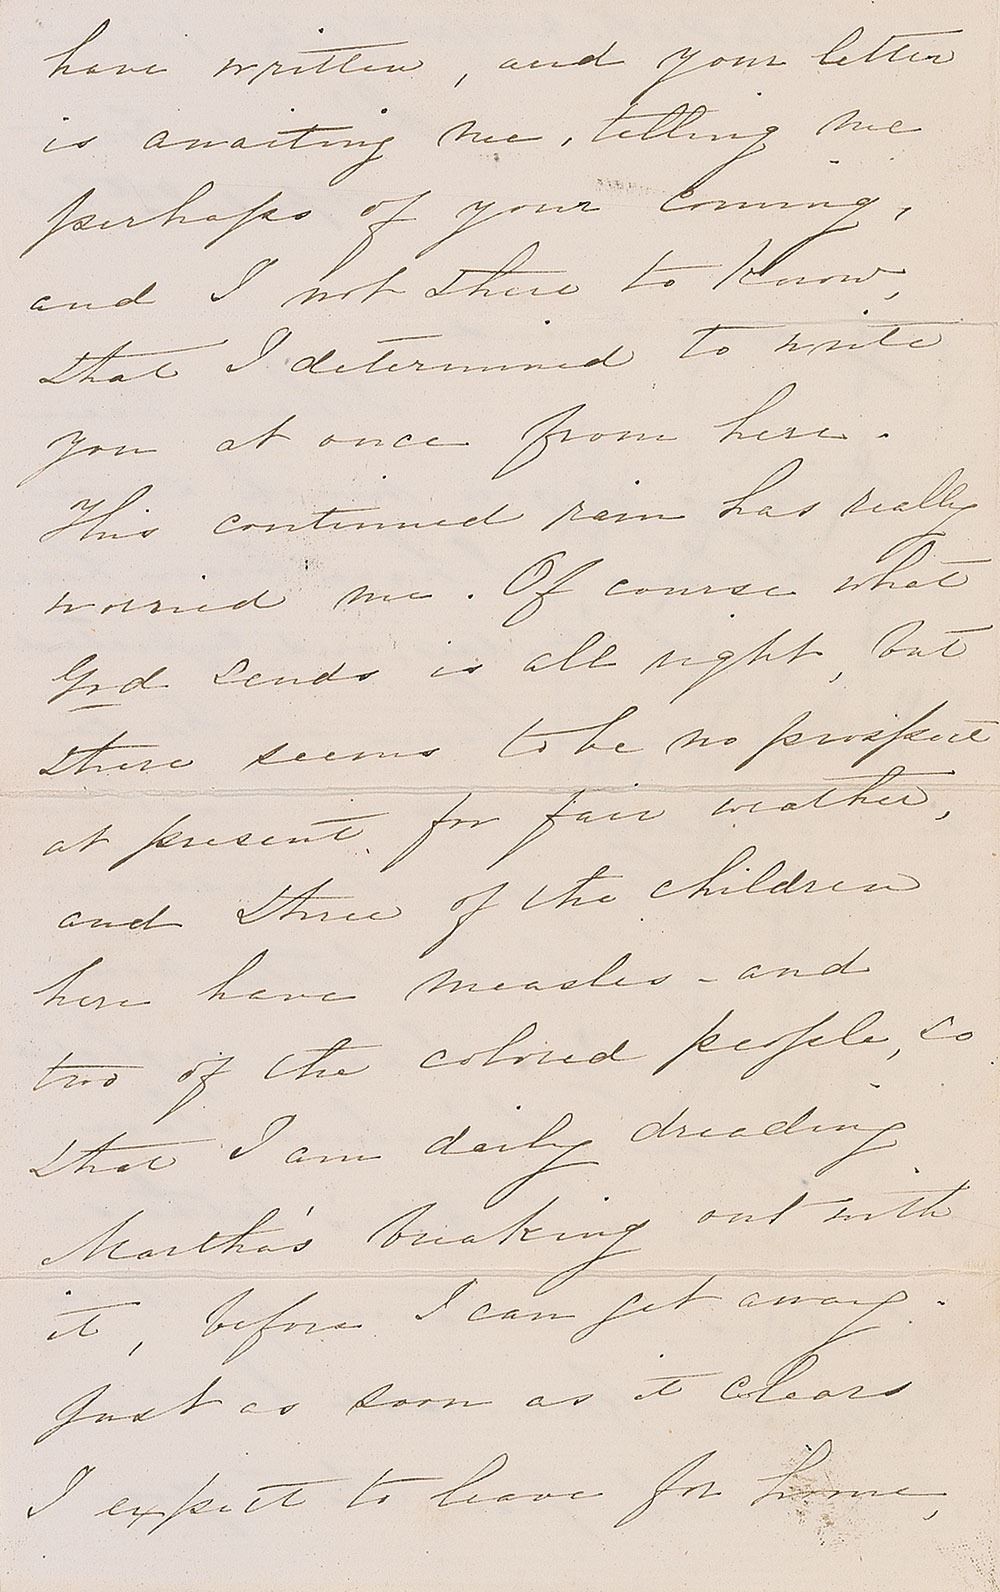 have written, and your letter
is awaiting me, telling me
perhaps of your coming,
and I not there to know,
that I determined to write
you at once from here.
This continued rain has really
worried me. Of course what
God sends is all right, but
there seems to be no prospect
at present for fair weather,
and three of the children
here have measles - and
two of the colored people, so
that I am daily dreading
Martha's breaking out with
it, before I can get away.
Just as soon as it clears
I expect to leave for home,